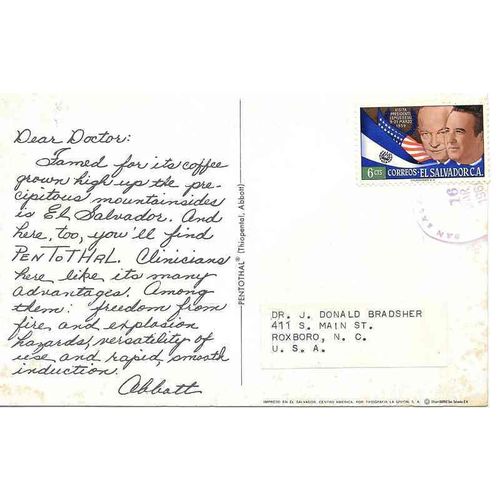 Dear Doctor:
Famed for its coffee
grown high up the pre-
cipitous mountainsides
is El Salvador. And
here, too, you'll find
PENTOTHAL. Clinicians
here like its many
advantages. Among
them: freedom from
fire and explosion
hazards, versatility of
use and rapid, smooth
induction.
Abbott
PENTOTHAL® (Thiopental, Abbott)
VISITA
PRESIDENTE
6 CTS
CORREOS·EL SALVADOR.C.A.
DR. J. DONALD BRADSHER
411 S. MAIN ST.
ROXBORO, N. C.
U. S. A.
IMPRESO EN EL SALVADOR, CENTRO AMERICA, POR TIPOGRAFIA LA UNION, S. A.